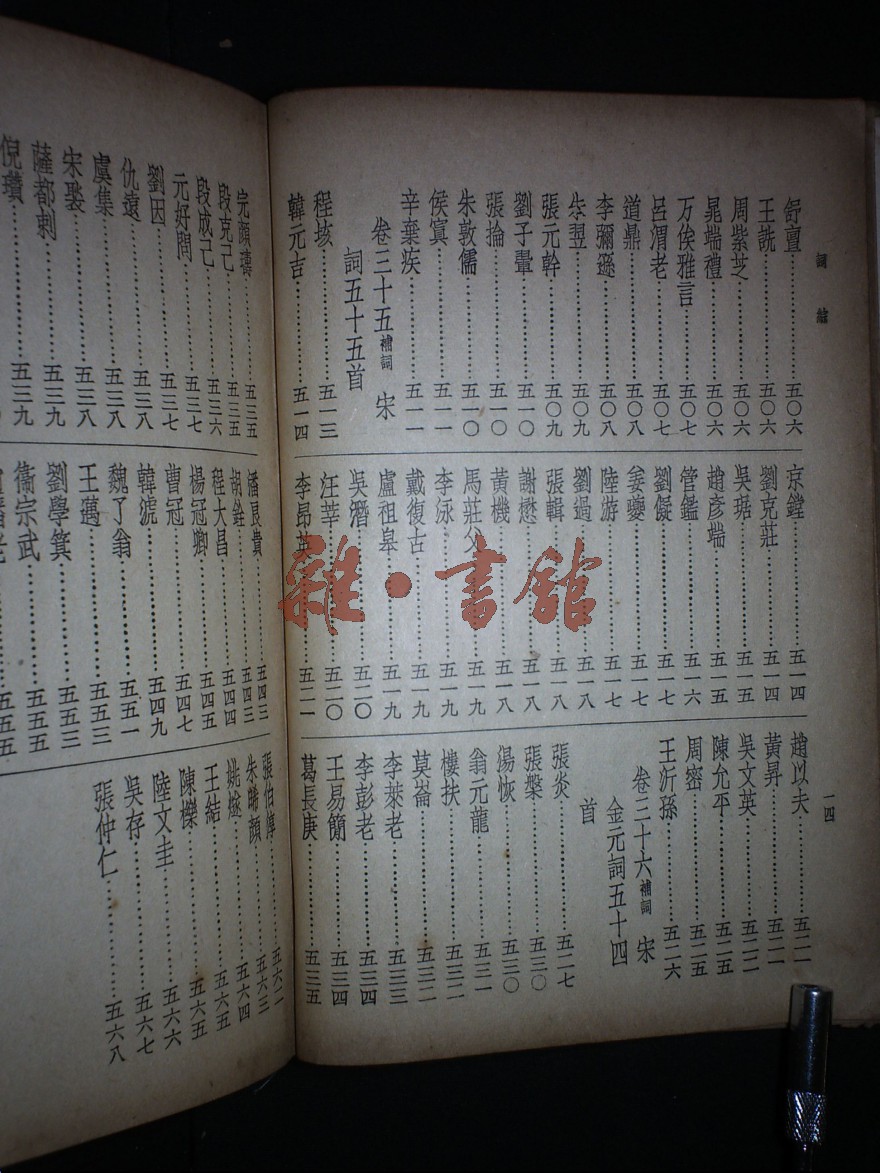 詞綜
一四
舒亶……五〇六
王詵……五〇六
周紫芝……五〇六
晁端禮……五〇六
万俟雅言……五〇七
呂渭老……五〇七
道鼎……五〇八
李彌遜……五〇八
朱翌……五〇九
張元幹……五〇九
劉子翬……五一〇
張掄……五一〇
朱敦儒……五一〇
侯寘……五一一
辛棄疾……五一一
卷三十五補詞 宋
詞五十五首
程垓……五一三
韓元吉……五一四
京鏜……五一四
劉克莊……五一四
吳琚……五一五
趙彥端……五一五
管鑑……五一六
劉儗……五一七
姜夔……五一七
陸游……五一七
劉過……五一八
張輯……五一八
謝懋……五一八
黃機……五一八
馬莊父……五一九
李泳……五一九
戴復古……五一九
盧祖皋……五一九
吳潛……五二〇
汪莘……五二〇
李昂英……五二一
趙以夫……五二一
黃昇……五二一
吳文英……五二二
陳允平……五二五
周密……五二五
王沂孫……五二六
卷三十六補詞 宋
金元詞五十四
首
張炎……五二七
張榘……五三〇
湯恢……五三〇
翁元龍……五三一
樓扶……五三二
莫崙……五三二
李萊老……五三三
李彭老……五三四
王易簡……五三四
葛長庚……五三五
完顏璹……五三五
段克己……五三五
段成己……五三六
元好問……五三七
劉因……五三七
仇遠……五三八
虞集……五三八
宋褧……五三八
薩都剌……五三九
倪瓚……五三九
潘良貴……五四三
胡銓……五四三
程大昌……五四四
楊冠卿……五四五
曹冠……五四七
韓淲……五四九
魏了翁……五五一
王邁……五五三
劉學箕……五五三
衞宗武……五五五
張伯淳……五六二
朱晞顏……五六三
姚燧……五六四
王結……五六五
陳櫟……五六五
陸文圭……五六六
吳存……五六七
張仲仁……五六八
雜·書館